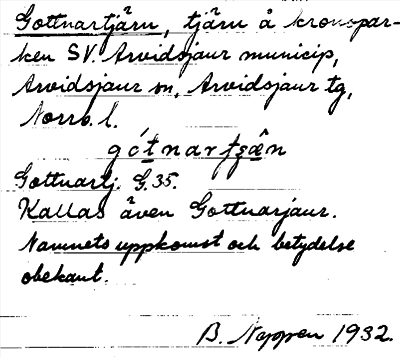 Gottnartjärn, tjärn å kronopar-
ken SV. Arvidsjaur municip,
Arvidsjaur sn, Arvidsjaur tg,
Norrb. l.
gótnartʂæ̂n
Gottnartj. G.35.
Kallas även Gottnarjaur.
Namnets uppkomst och betydelse
obekant.
B. Neppen 1932.